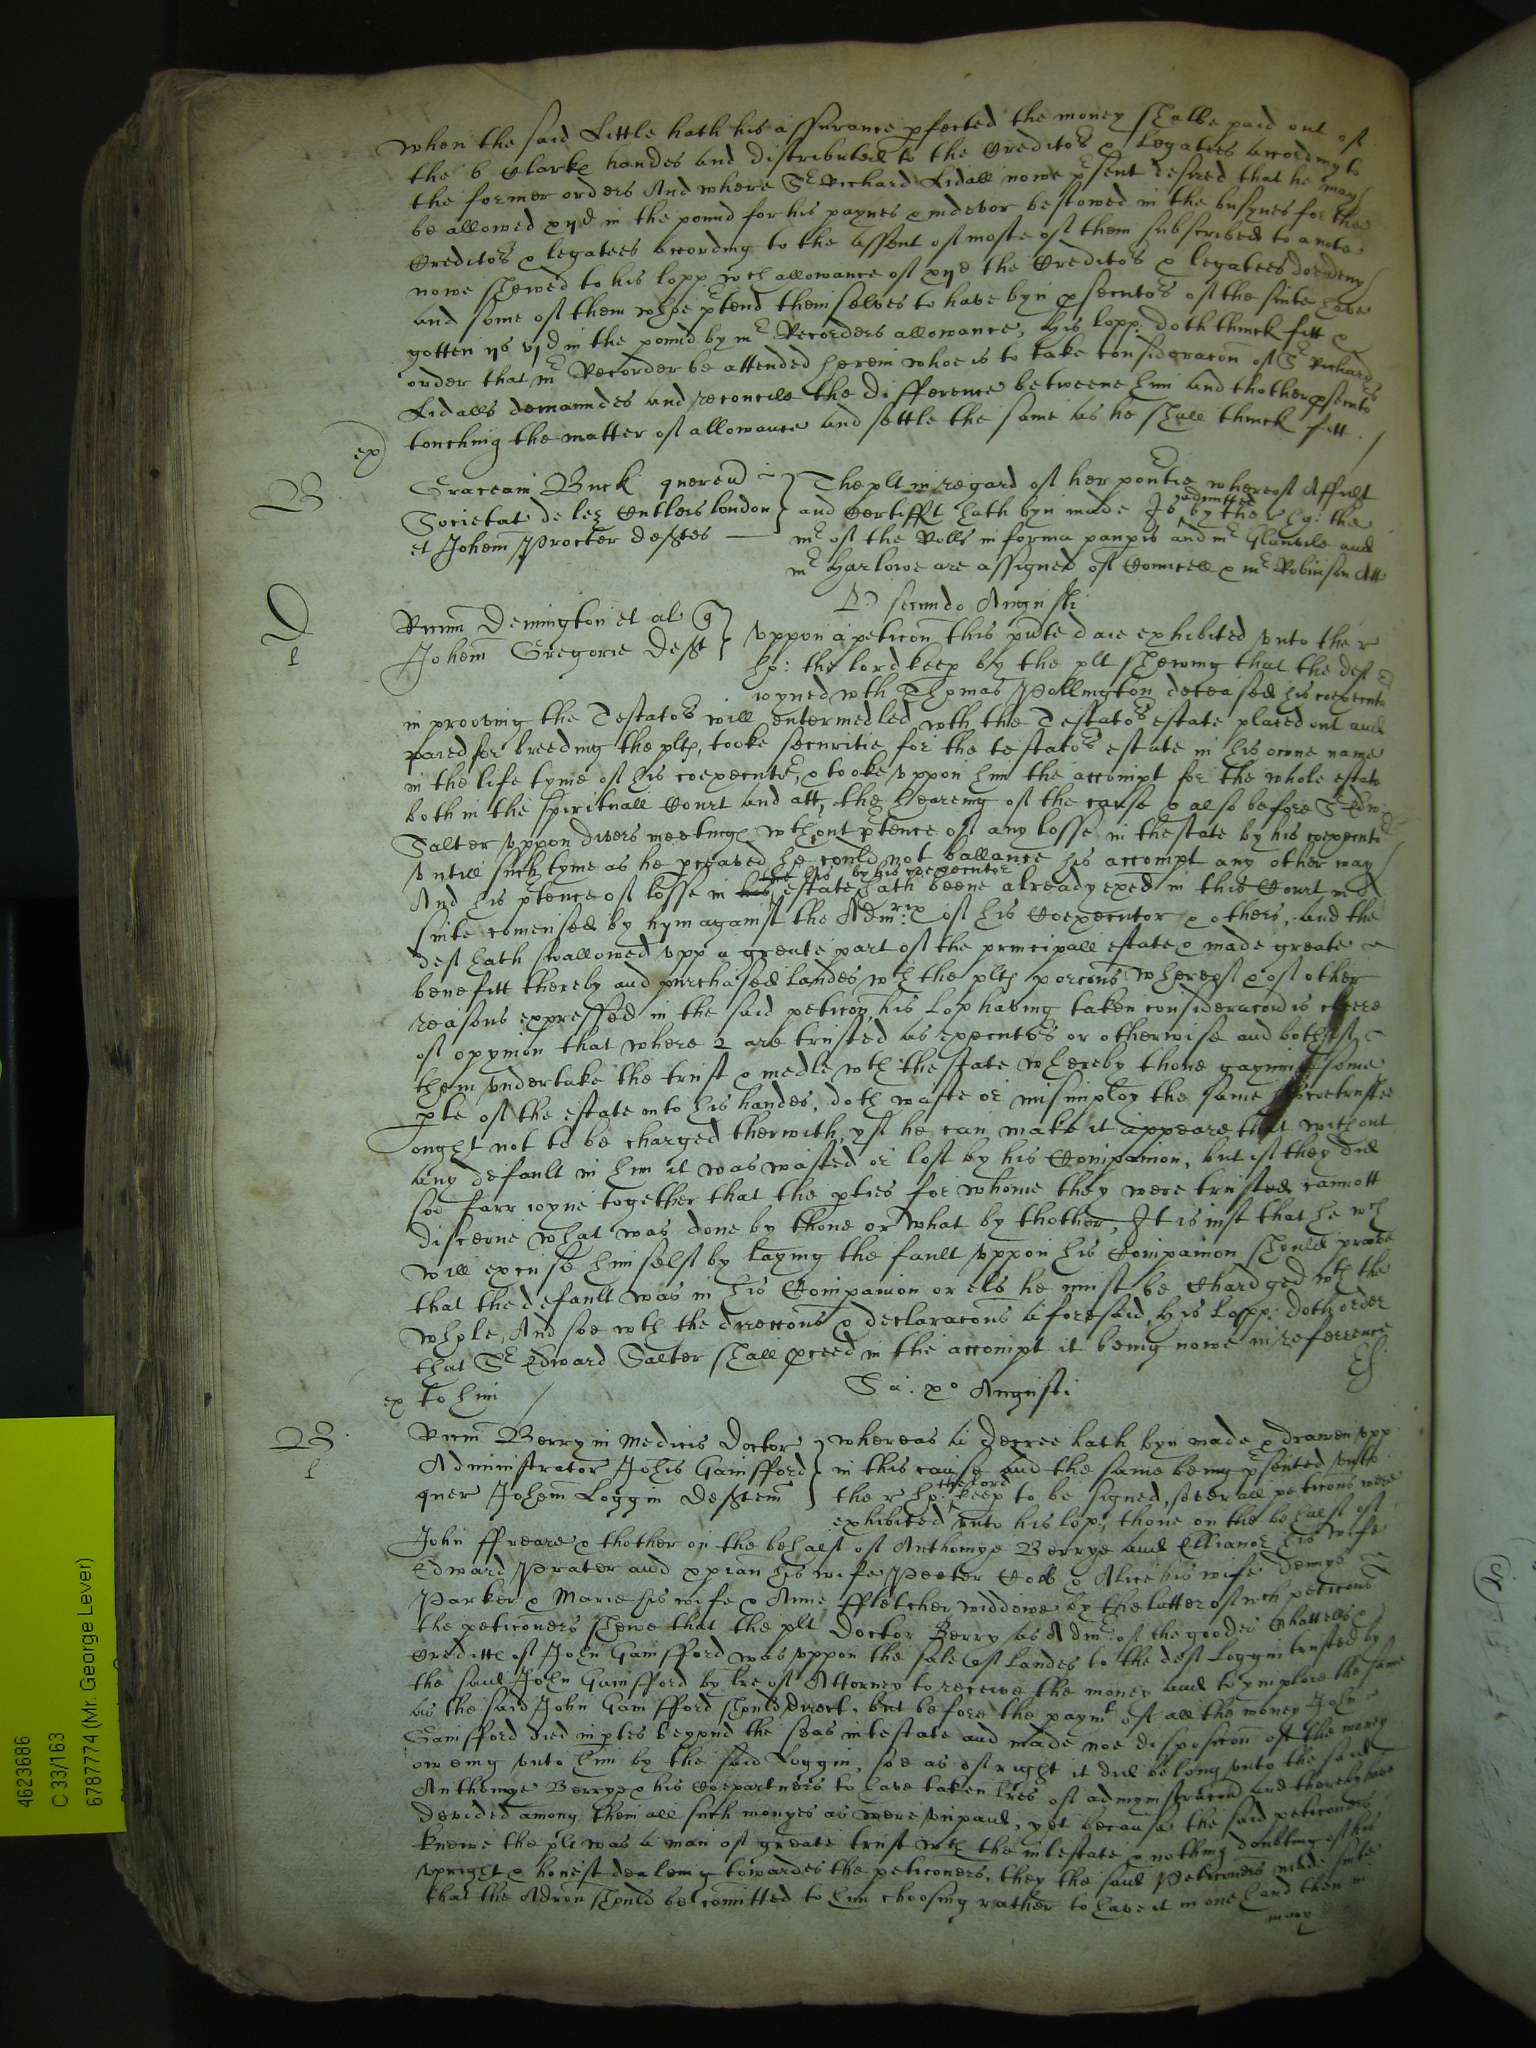 when the said Little hath his assurance pfected the money shalbe paid out of
the 6 Clarkes handes and distributed to the Creditors & Legatees according to
the former orders And where Sr Richard Lidall nowe psent desired that he may
be allowed xijd in the pound for his paynes & indevor bestowed in the busynes for the
Creditors & legatees according to the assent of moste of them subscribed to a note
nowe shewed to his lopp wch allowance of xijd the Creditors & legatees doe deny
and some of them whoe ptend themselves to have byn psecutors of the suite have
gotten ijs vjd in the pound by mr Recorders allowance, His lopp. doth thinck fitt &
order that mr Recorder be attended herein whoe is to take consideracon of Sr Richard
Lidalls demaundes and reconcile the difference betweene him and thother psecutors
touching the matter of allowance and settle the same as he shall thinck fitt.
ex
B
Graceam Buck queren
Societat de lez Cutlers london
et Johem Procter deftes
The plt in regard of her povertie whereof Affidt
and Certifft hath byn made Is admitted by the r hp: the
mr of the Rolls in forma paupis and mr Glanvile and
mr Harlowe are assigned of Councell & mr Robinson Att
D secundo Augusti
D
Denington et al q
Johem Gregorie deft
Uppon a peticon this pnte daie exhibited unto the r
hp: the lord keep by the plt shewing that the deft
ioyned wth Thomas Pallington deceased his coexecutor
in prooving the Testators will entermedled wth the Testators estate placed out and
paied for breeding the plts, tooke securitie for the testators estate in his owne name
in the life tyme of his coexecutor, & tooke uppon him the accompt for the whole estate
both in the spirituall Court and att the hearing of the cause & also before Sr Edw:
Salter uppon divers meetings wthout ptence of any losse in thestate by his coexecutor
untill such tyme as he pceaved he could not ballance his accompt any other way
And his ptence of losse in the his estate by his coexecutor hath beene already exed in this Court in a
suite comensed by hym against the Admrix of his Coexecutor & others, and the
deft hath swallowed upp a greate part of the principall estate & made greate
benefitt thereby and purchased landes wth the plts porcons whereof & of other
reasons expressed in the said peticon, his Lop having taken consideracon is cleere
of opynion that where 2 are trusted as executors or otherwise and both of
them undertake the trust & medle wth thestate whereby thone gayning some
pte of the estate into his handes, doth waste or misimploy the same his cotrustee
ought not to be charged therwith, yf he can make it appeare that without
any default in him it was wasted or lost by his Companion, but if they did
soe farr ioyne together that the pties for whome they were trusted cannott
discerne what was done by thone or what by thother, It is iust that he wch
will excuse himself by laying the fault uppon his Companion should prove
that the default was in his Companion or els he must be chardged wth the
whole, And soe wth the direccons & declaracons aforesaid, His Lopp: doth order
that Sr Edward Salter shall pceed in the accompt it being nowe in referrence
ex to him
Sa: xo Augusti
B
Berry in Medicis Doctor
Administrator Johis Gainsford
quer Johem Loggin deftem
whereas a decree hath byn made & drawen upp
in this cause and the same being psented unto
the r hp: the lord keep to be signed, severall peticons were
exhibited unto his lop, thone on the behalf of
John ffreare & thother on the behalf of Anthonye Berrye and Ellianor his wife
Edward Prater and xpian his wife Peeter Cobb & Alice his wife Denys
Parker & Marie his wife & Anne ffletcher widdowe, by the latter of wch peticons
the peticoners shewe that the plt Doctor Berry as Admr of the goodes Chattells &
Creditts of John Gainsford was uppon the sale of landes to the deft Loggin trusted by
the said John Gainsford by lre of Attorney to receive the money and to ymploye the same
as the said John Gainsford should direct, but before the paymt of all the money John
Gainsford died in ptes beyond the seas intestate and made noe disposicon of the money
oweing unto him by the said Loggin, soe as of right it did belong unto the said
Anthonye Berrye & his Copartners to have taken lres of admynistracon and thereby have
devided among them all such monyes as were unpaid, yet because the said peticoners
knewe the plt was a man of greate trust wth the intestate & nothing doubting of his
upright & honest dealeing towardes the peticoners, they the said Peticoners made suite
that the Admon should be comitted to him choosing rather to have it in one hand then in
many
4623686
C 33/163
6787774 (Mr. George Lever)